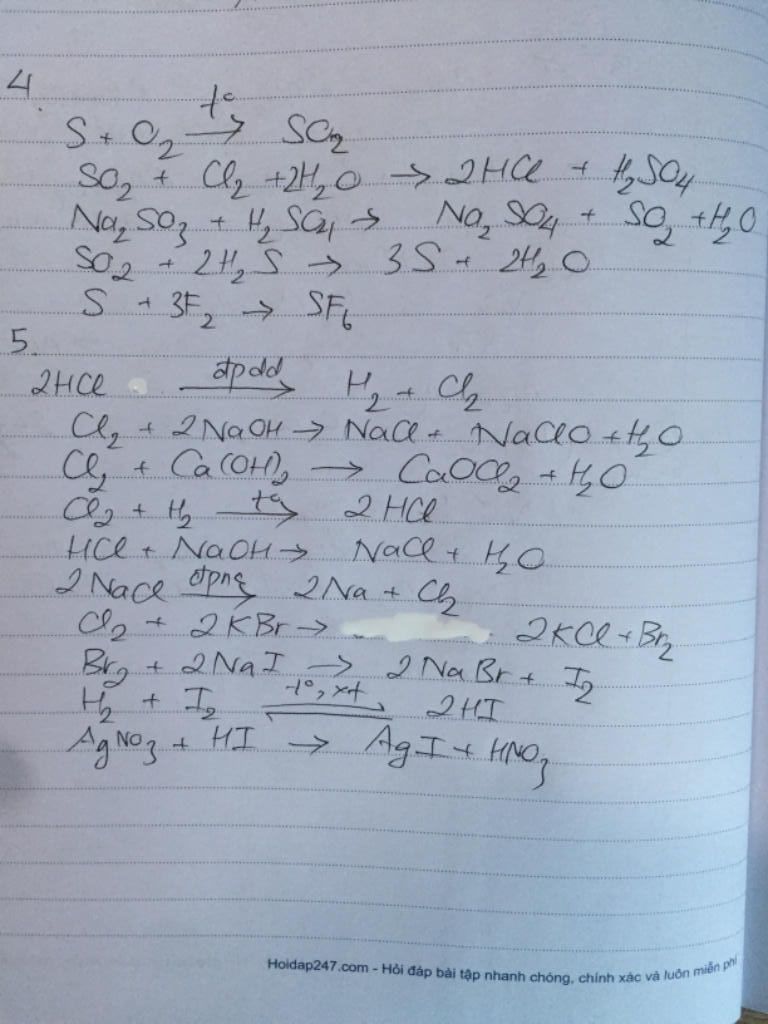 4.
S + O₂ –t°→ SO₂
SO₂ + Cl₂ + 2H₂O → 2HCl + H₂SO₄
Na₂SO₃ + H₂SO₄ → Na₂SO₄ + SO₂ + H₂O
SO₂ + 2H₂S → 3S + 2H₂O
S + 3F₂ → SF₆
5.
2HCl –đpdd→ H₂ + Cl₂
Cl₂ + 2NaOH → NaCl + NaClO + H₂O
Cl₂ + Ca(OH)₂ → CaOCl₂ + H₂O
Cl₂ + H₂ –t°→ 2HCl
HCl + NaOH → NaCl + H₂O
2NaCl –đpnc→ 2Na + Cl₂
Cl₂ + 2KBr → 2KCl + Br₂
Br₂ + 2NaI → 2NaBr + I₂
H₂ + I₂ –t°, xt⇌ 2HI
AgNO₃ + HI → AgI + HNO₃
Hoidap247.com - Hỏi đáp bài tập nhanh chóng, chính xác và luôn miễn phí